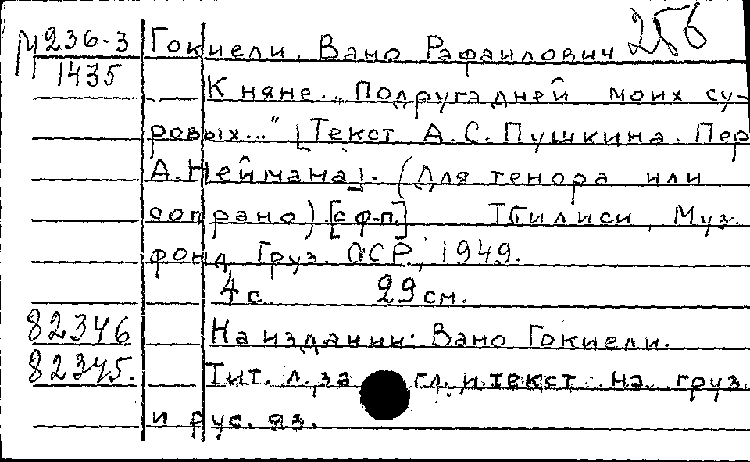 М 236-3 Гокиели, Вано Рафаилович 256
1435 К няне. „Подруга дней моих су-
ровых..." [Текст А.С. Пушкина. Пер.
А. Неймана]. (Для тенора или
сопрано) [с ф-п.] Тбилиси, Муз.
фонд Груз. ССР, 1949.
4 с. 29 см.
82346 На издании: Вано Гокиели.
82345. Тит. л., загл. и текст на груз.
и рус. яз.